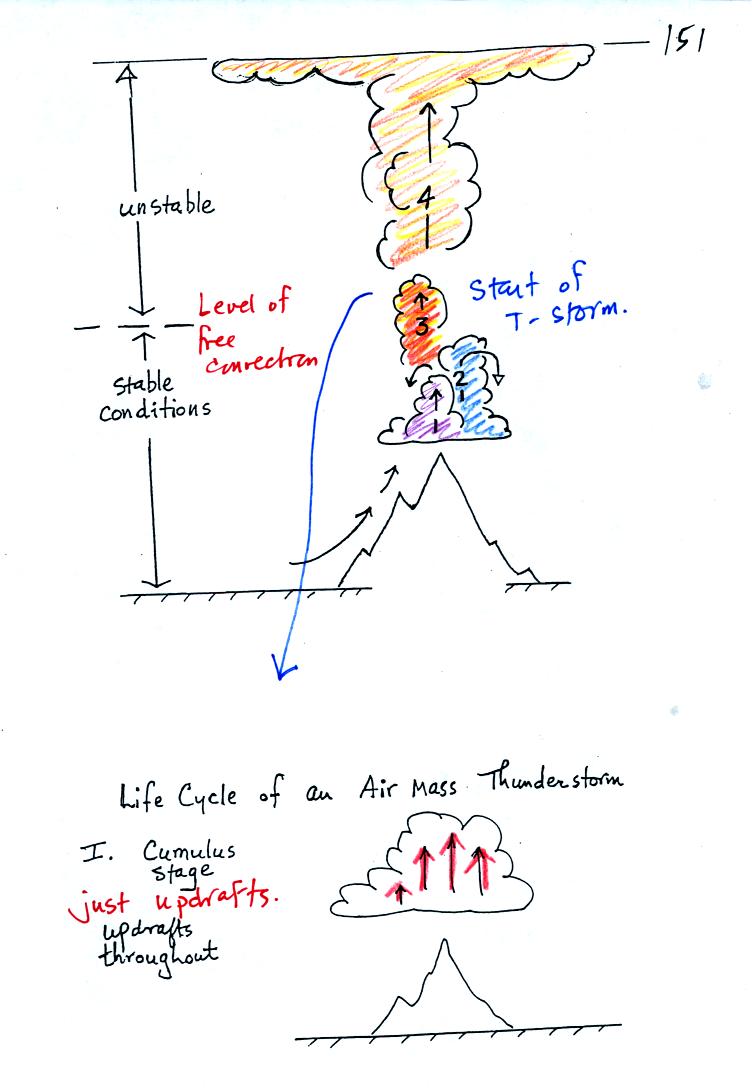 151
unstable
4
Level of
free
convection
3
Start of
T-storm.
stable
conditions
2
1
Life Cycle of an Air Mass Thunderstorm
I. Cumulus
stage
just updrafts.
updrafts
throughout